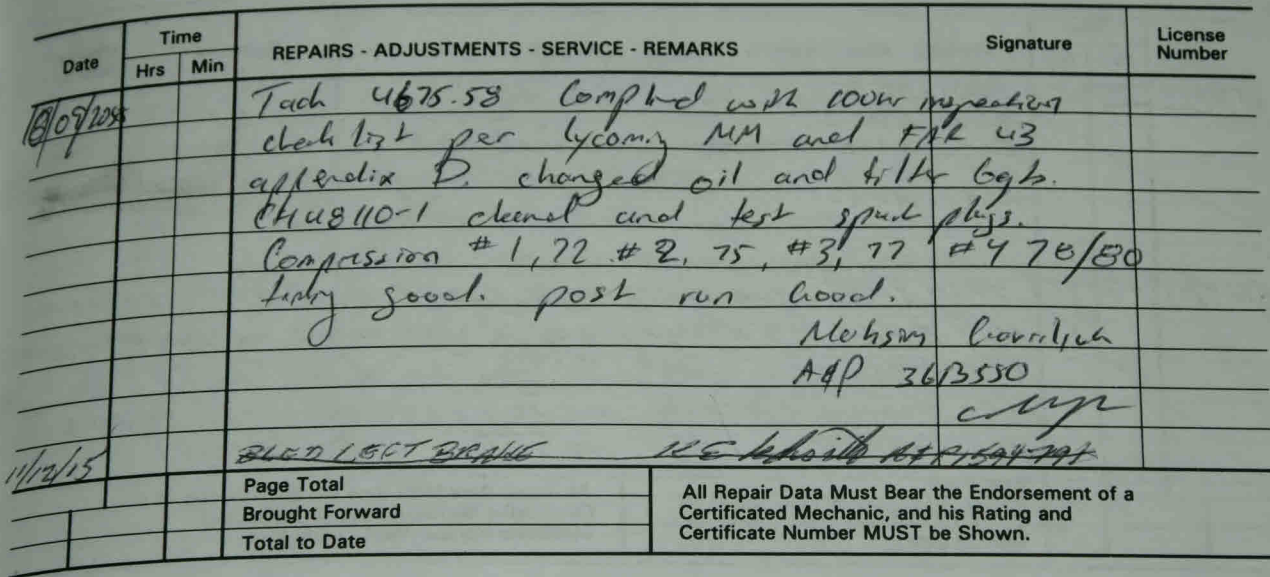 Date
Time
Hrs Min
REPAIRS - ADJUSTMENTS - SERVICE - REMARKS
Signature
License Number
Tach 4675.58 Complied with 100hr inspection
check list per lycoming MM and FAR 43
appendix D. changed oil and filter 6qts.
CH48110-1 cleaned and test spark plugs.
Compression #1, 72 #2, 75, #3, 77 #4 78/80
good. post run Good.
Mohsin
A&P
11/12/15 BLED LEFT BRAKE
Page Total
Brought Forward
Total to Date
All Repair Data Must Bear the Endorsement of a
Certificated Mechanic, and his Rating and
Certificate Number MUST be Shown.